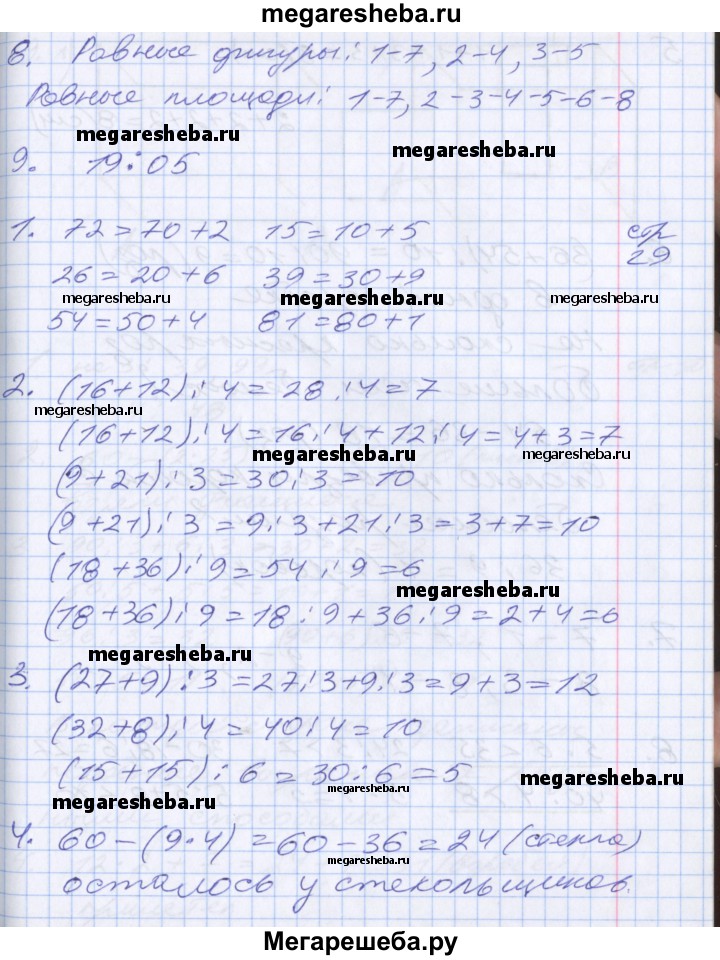 megaresheba.ru
8. Равные фигуры: 1-7, 2-4, 3-5
Равные площади: 1-7, 2-3-4-5-6-8
megaresheba.ru megaresheba.ru
9. 19:05
1. 72=70+2 15=10+5 стр 29
26=20+6 39=30+9
megaresheba.ru megaresheba.ru megaresheba.ru
54=50+4 81=80+1
2. (16+12):4=28:4=7
megaresheba.ru
(16+12):4=16:4+12:4=4+3=7
megaresheba.ru megaresheba.ru
(9+21):3=30:3=10
(9+21):3=9:3+21:3=3+7=10
(18+36):9=54:9=6
megaresheba.ru
(18+36):9=18:9+36:9=2+4=6
megaresheba.ru
3. (27+9):3=27:3+9:3=9+3=12
(32+8):4=40:4=10
(15+15):6=30:6=5
megaresheba.ru megaresheba.ru megaresheba.ru
4. 60-(9·4)=60-36=24 (стекла)
megaresheba.ru megaresheba.ru
осталось у стекольщиков.
Мегарешеба.ру